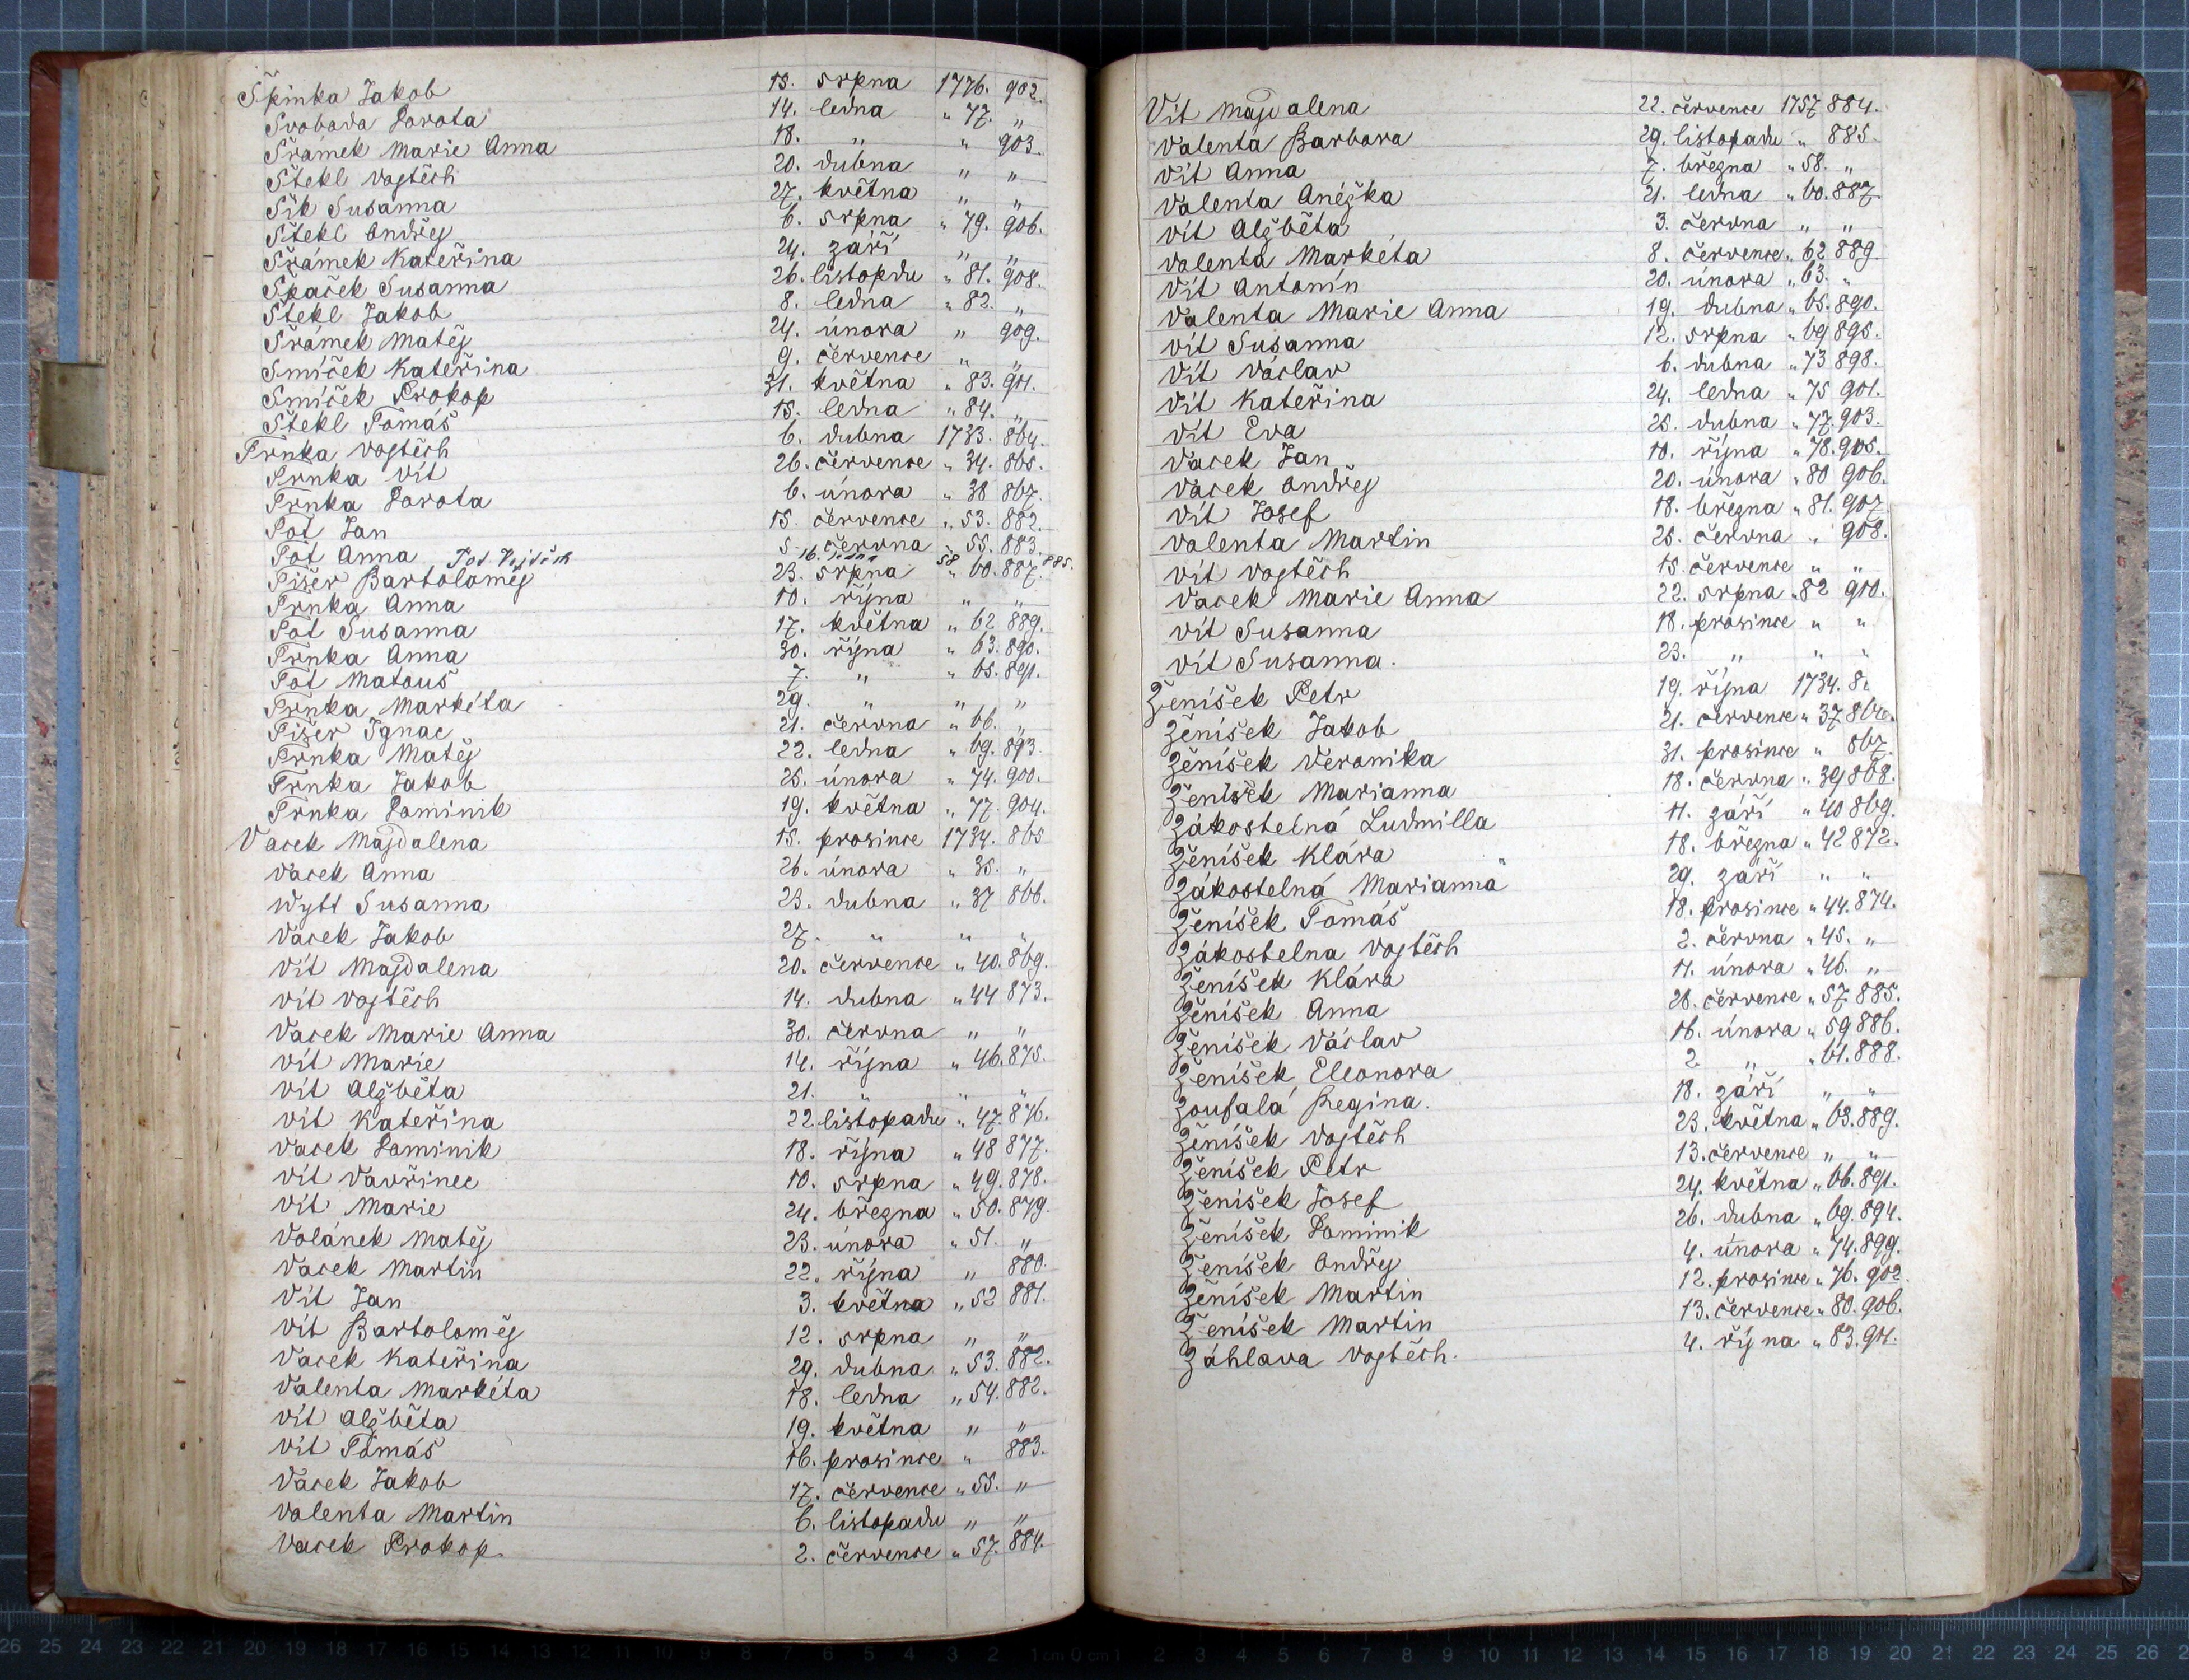 Špinka Jakob 13. srpna 1776. 902.
Svoboda Dorota 14. ledna „ 77. „
Šrámek Marie Anna 18. „ „ 903.
Štekl Vojtěch 20. dubna „ „
Šik Susanna 27. května „ „
Štekl Ondřej 6. srpna „ 79. 906.
Šrámek Kateřina 24. září „ „
Špaček Susanna 26. listopdu „ 81. 908.
Štekl Jakob 8. ledna „ 82. „
Šrámek Matěj 24. února „ 909.
Smíček Kateřina 9. července „ „
Smíček Prokop 31. května „ 83. 911.
Štekl Tomáš 15. ledna „ 84. „
Trnka Vojtěch 6. dubna 1733. 864.
Trnka Vít 26. července „ 34. 865.
Trnka Dorota 6. února „ 38 867.
Tot Jan 15. července „ 53. 882.
Tot Anna 5. června „ 55. 883.
Tot Vojtěch 16. ledna 58 885.
Tišer Bartoloměj 23. srpna „ 60. 887.
Trnka Anna 10. října „ „
Tot Susanna 17. května „ 62 889.
Trnka Anna 30. října „ 63. 890.
Tot Matouš 7. „ „ 65. 891.
Trnka Markéta 29. „ „ „
Tišer Ignac 21. června „ 66. „
Trnka Matěj 22. ledna „ 69. 893.
Trnka Jakob 25. února „ 74. 900.
Trnka Dominik 19. května „ 77. 904.
Vacek Majdalena 15. prosince 1734. 865
Vacek Anna 26. února „ 35. „
Wytt Susanna 23. dubna „ 37 866.
Vacek Jakob 27. „ „ „
Vít Majdalena 20. července „ 40. 869.
Vít Vojtěch 14. dubna „ 44 873.
Vacek Marie Anna 30. června „ „
Vít Marie 14. října „ 46. 875.
Vít Alžběta 21. „ „ „
Vít Kateřina 22 listopadu „ 47. 876.
Vacek Dominik 18. října „ 48 877.
Vít Vavřinec 10. srpna „ 49. 878.
Vít Marie 24. března „ 50. 879.
Volánek Matěj 23. února „ 51. „
Vacek Martin 22. října „ 880.
Vít Jan 3. května „ 52 881.
Vít Bartoloměj 12. srpna „ „
Vacek Kateřina 29. dubna „ 53. 882.
Valenta Markéta 18. ledna „ 54. 882.
Vít Alžběta 19. května „ „
Vít Tomáš 16. prosince „ 883.
Vacek Jakob 17. července „ 55. „
Valenta Martin 6. listopadu „ „
Vacek Prokop 2. července „ 57. 884.
Vít Majdalena 22. července 1757 884.
Valenta Barbora 29. listopadu „ 885.
Vít Anna 7. března „ 58. „
Valenta Anéžka 21. ledna „ 60. 887.
Vít Alžběta 3. června „ „
Valenta Markéta 8. července „ 62 889.
Vít Antonín 20. února „ 63. „
Valenta Marie Anna 19. dubna „ 65. 890.
Vít Susanna 12. srpna „ 69 895.
Vít Václav 6. dubna „ 73 898.
Vít Kateřina 24. ledna „ 75 901.
Vít Eva 25. dubna „ 77. 903.
Vacek Jan 10. října „ 78. 905.
Vacek Ondřej 20. února „ 80 906.
Vít Josef 18. března „ 81. 907.
Valenta Martin 25. června „ 908.
Vít Vojtěch 15. července „ „
Vacek Marie Anna 22. srpna „ 82 910.
Vít Susanna 18. prosince „ „
Vít Susanna. 23. „ „ „
Ženíšek Petr 19. října 1734.
Ženíšek Jakob 21. července „ 37
Ženíšek Veronika 31. prosince „ 867.
Ženíšek Marianna 18. června „ 39 868.
Zákostelná Ludmilla 11. září „ 40 869.
Ženíšek Klára 18. března „ 42 872.
Zákostelná Marianna 29. září „ „
Ženíšek Tomáš 18. prosince „ 44. 874.
Zákostelna Vojtěch 2. června „ 45. „
Ženíšek Klára 11. února „ 46. „
Ženíšek Anna 28. července „ 57. 885.
Ženíšek Václav 16. února „ 59 886.
Ženíšek Eleonora 2. „ „ 61. 888.
Zoufalá Regina. 18. září „ „
Ženíšek Vojtěch 23. května „ 63. 889.
Ženíšek Petr 13. července „ „
Ženíšek Josef 24. května „ 66. 891.
Ženíšek Dominik 26. dubna „ 69. 894.
Ženíšek Ondřej 4. února „ 74. 899.
Ženíšek Martin 12. prosince „ 76. 902.
Ženíšek Martin 13. července „ 80. 906.
Záhlava Vojtěch. 4. října „ 83. 911.
26 25 24 23 22 21 20 19 18 17 16 15 14 13 12 11 10 9 8 7 6 5 4 3 2 1 cm 0 cm 1 2 3 4 5 6 7 8 9 10 11 12 13 14 15 16 17 18 19 20 21 22 23 24 25 26